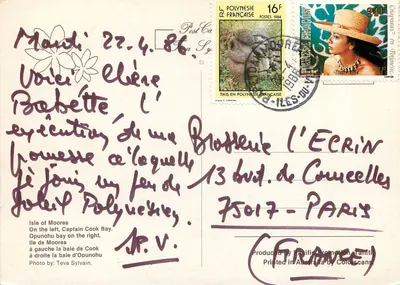 Mardi 22.4.86.
Voici chère
Babette l'
exécution de ma
promesse à laquelle
je joins un peu de
soleil Polynésien.
R.V.
Brasserie l'ECRIN
13 bvd. de Courcelles
75017 - PARIS
(FRANCE)
RF POLYNESIE FRANÇAISE
POSTES 1984
16F
TIKIS EN POLYNESIE FRANÇAISE
1986
ILES-DU-
Isle of Moorea
On the left, Captain Cook Bay,
Opunohu bay on the right.
Ile de Moorea
à gauche la baie de Cook
à droite la baie d'Opunohu
Photo by: Teva Sylvain.
Produced by Pacific
Printed in Australia by Colorscans